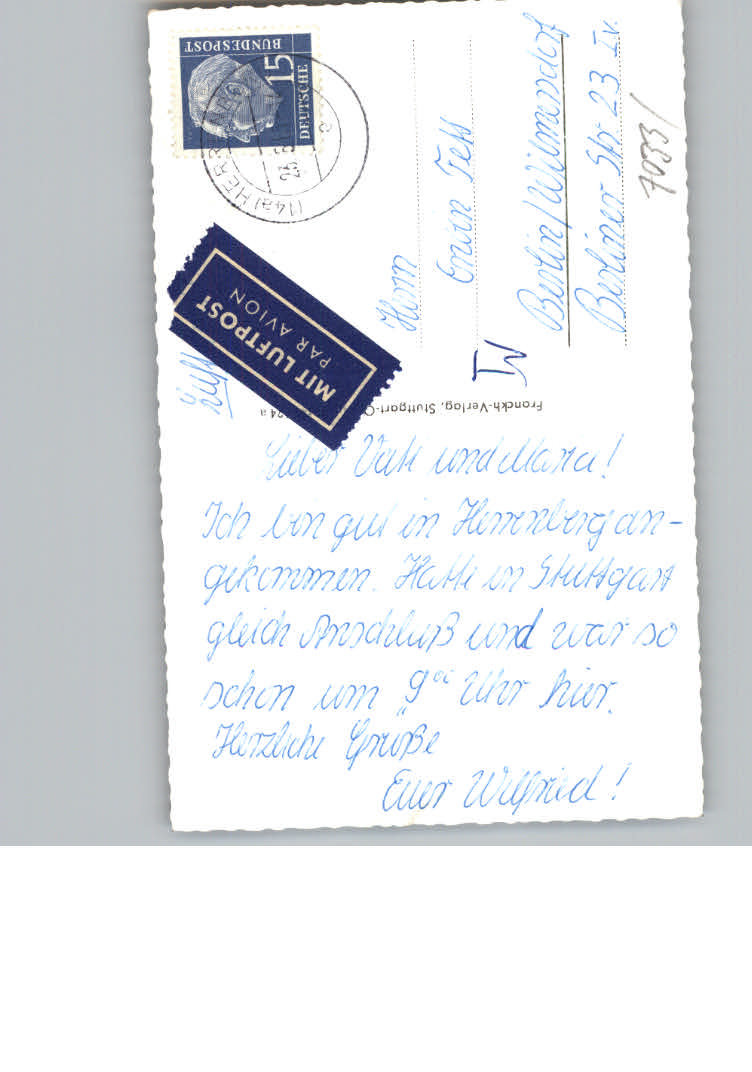 Lieber Vati und Maria!
Ich bin gut in Herrenberg an-
gekommen. Hatte in Stuttgart
gleich Anschluß und war so
schon um 9 Uhr hier.
Herzliche Grüße
Euer Wilfried!
Herrn
Erwin
Berlin/Wilmersdorf
Berliner Str. 23 IV.
70331
15
DEUTSCHE
BUNDESPOST
(14a) HERRENBERG
MIT LUFTPOST
PAR AVION
Franckh-Verlag, Stuttgart-O